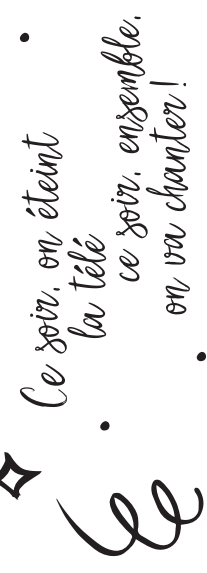 Ce soir, on éteint
la télé
ce soir, ensemble,
on va chanter !